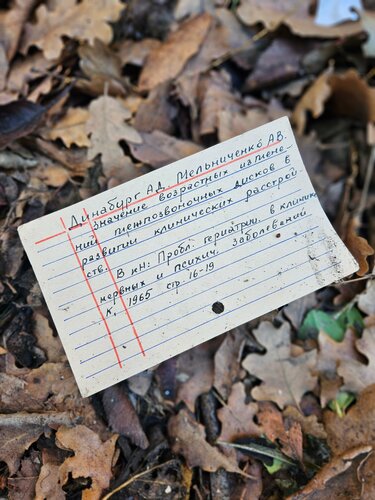 Динабург АД, Мельниченко АВ.
Значение возрастных измене-
ний межпозвоночных дисков в
развитии клинических расстрой
ств. В кн: Пробл. гериатрии. в клинике
нервных и психич. заболеваний
К, 1965 стр. 16-19